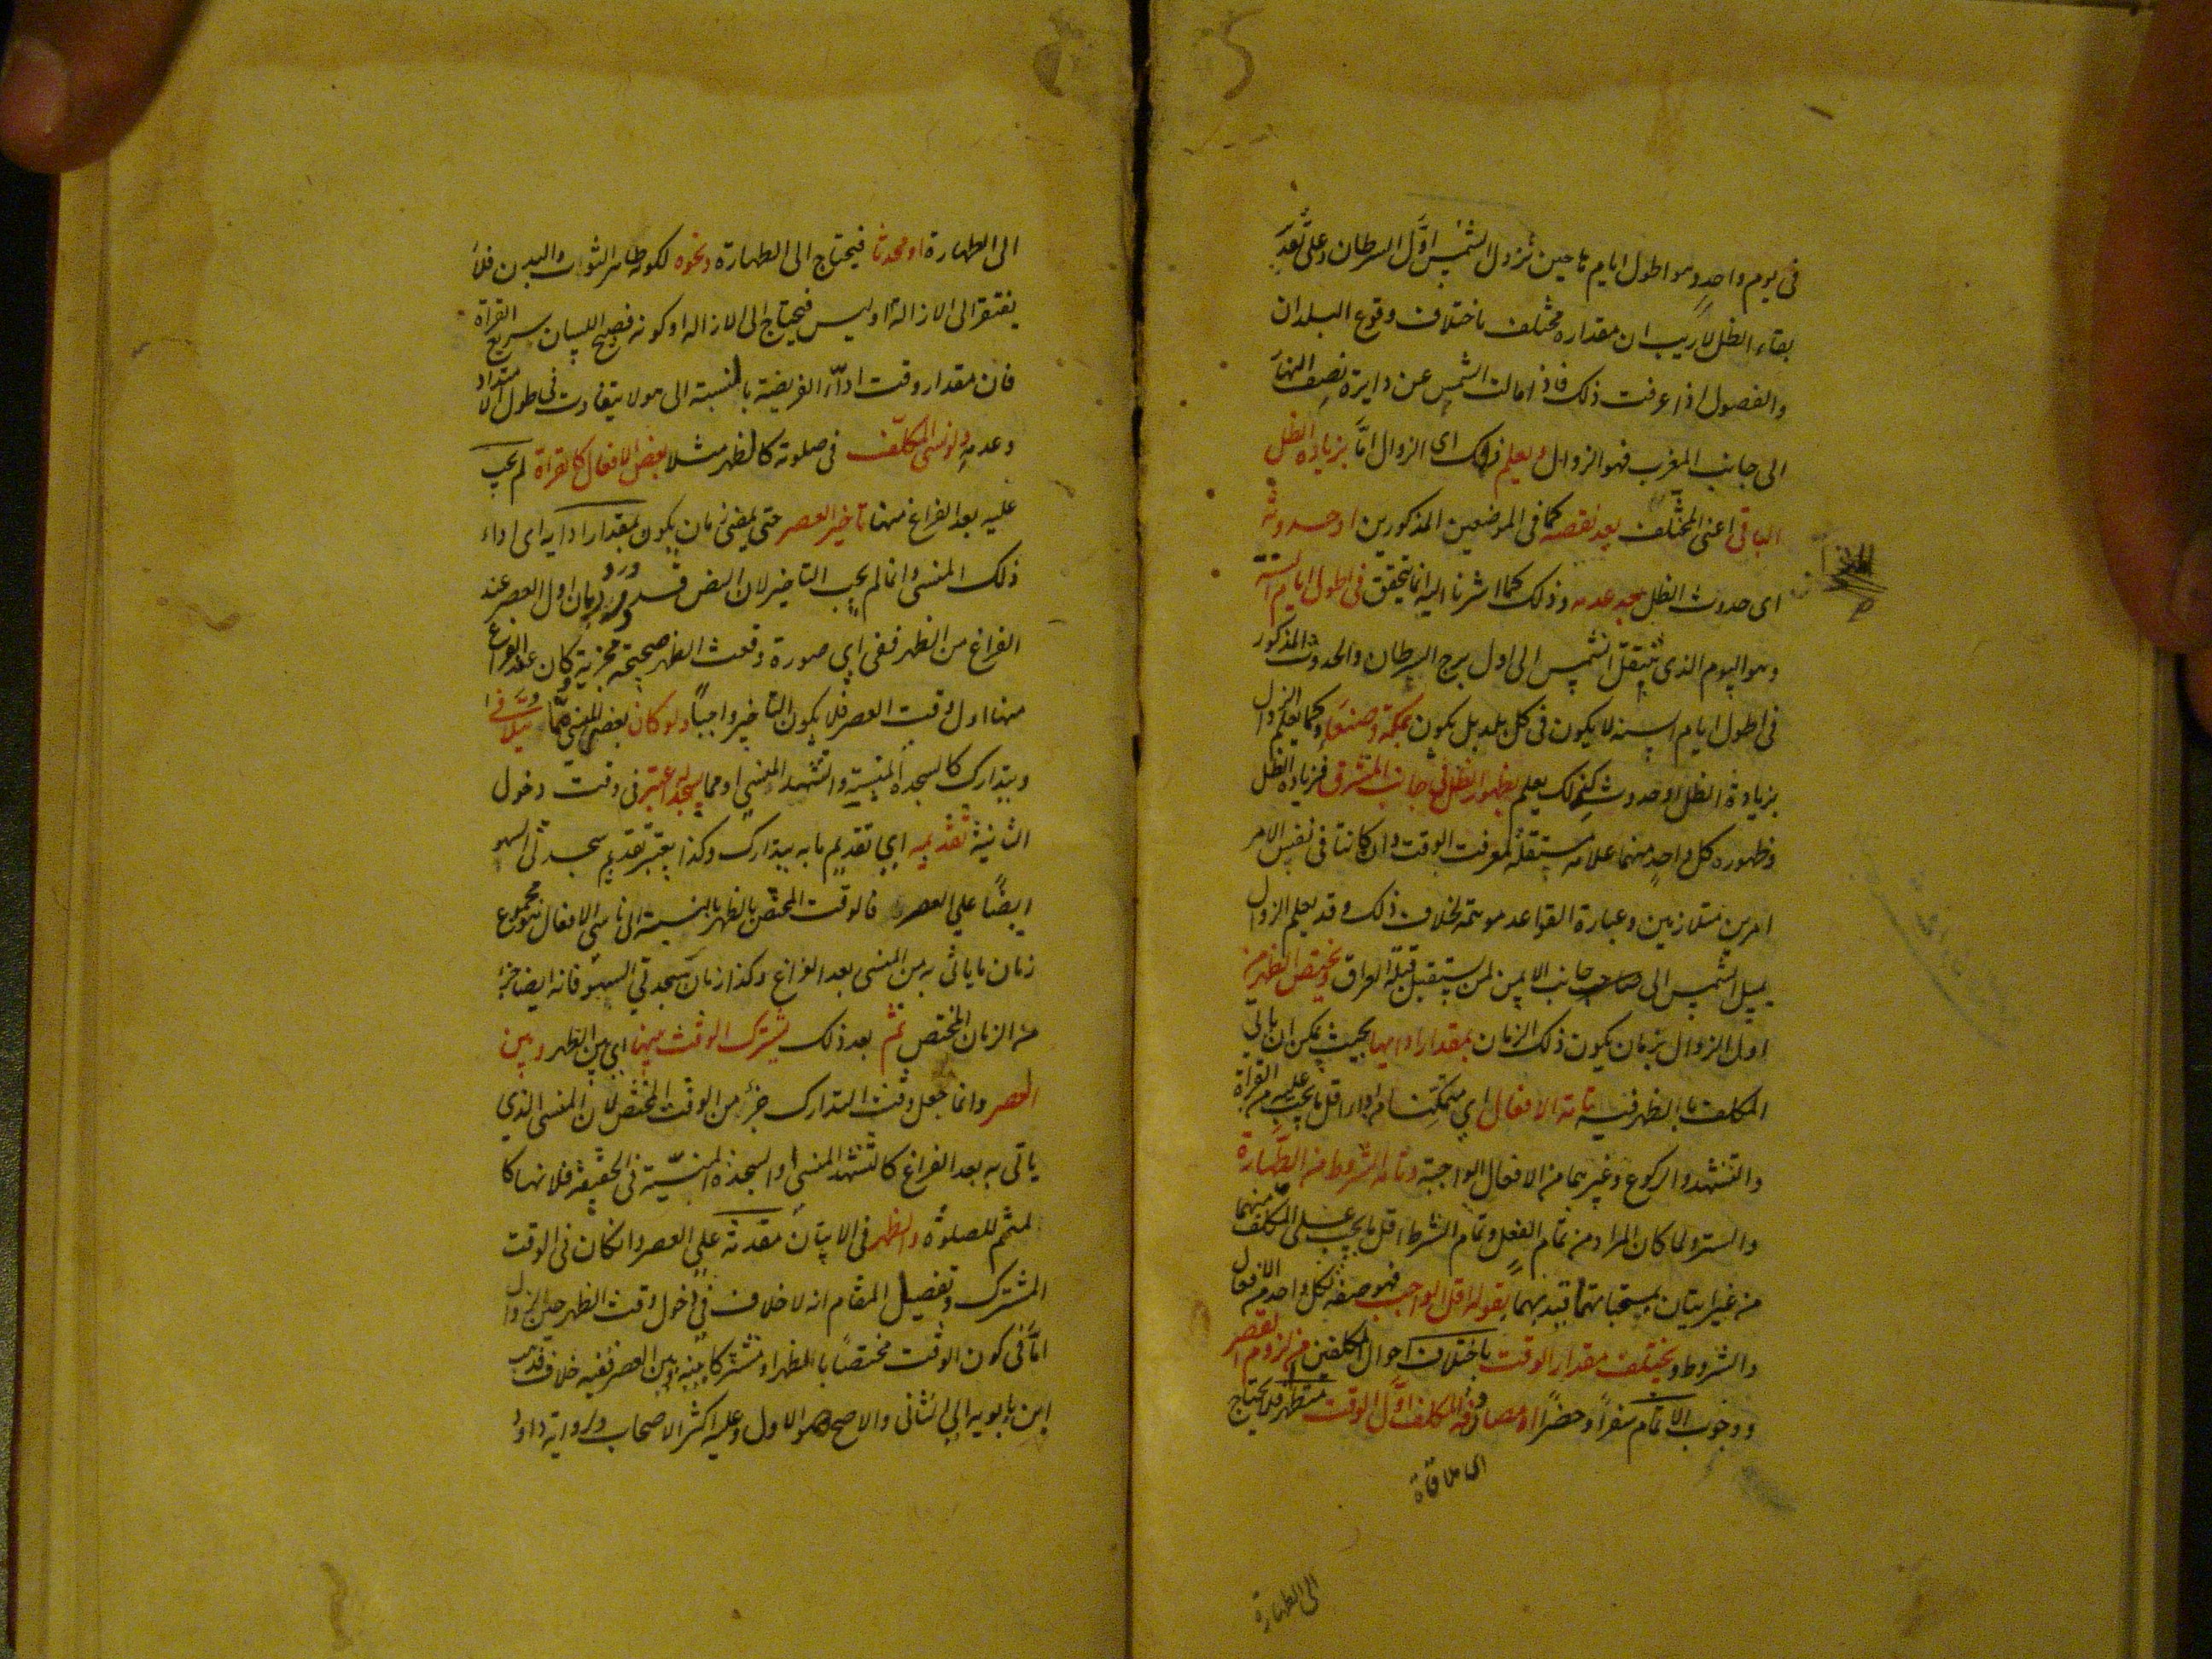 فى يوم واحد وهو اطول ايام تا حين نزول الشمس اوّل السرطان وعلى تقدير
بقاء الظل لاريب ان مقداره مختلف باختلاف وقوع البلدان
والفصول اذا عرفت ذلك فاذا مالت الشمس عن دايرة نصف النهار
الى جانب المغرب فهو الزوال ويعلم ذلك اى الزوال امّا بزيادة الظل
الباقى اعنى المختلف بعد نقصه كما فى الموضعين المذكورين او حدوثه
اى حدوث الظل بعد عدمه وذلك كما اشرنا اليه انما يتحقق فى اطول ايام السنة
وهو اليوم الذى تنتقل الشمس الى اول برج السرطان والحدوث المذكور
فى اطول ايام السنه لا يكون فى كل بلد بل يكون بمكة وصنعا وكما يعلم الزوال
بزيادة الظل او حدوثه كذلك يعلم بظهور الظل فى جانب المشرق فزيادة الظل
وظهوره كل واحد منهما علامه مستقلة لمعرفت الوقت وان كانتا فى نفس الامر
امرين متلازمين وعبارة القواعد موهمة لخلاف ذلك وقد يعلم الزوال
بميل الشمس الى جانب الايمن لمن يستقبل قبلة العراق ويختص الظهر من
اول الزوال بزمان يكون ذلك الزمان بمقدار ادايها بحيث يمكن ان ياتي
المكلف بالظهر فيه تامة الافعال اي متمكنا من اداء اقل ما يجب عليه من القراة
والتشهد والركوع وغيرهما من الافعال الواجبة وتامة الشروط من الطهارة
والستر ولما كان المراد من تمام الفعل وتمام الشرط اقل ما يجب على المكلف منهما
من غير اتيان بمستحباتهما قيدهما بقوله اقل الواجب فهو صفة لكل واحد من الافعال
والشروط ويختلف مقدار الوقت باختلاف احوال المكلفين من لزوم القصر
ووجوب الاتمام سفرا وحضرا او مصادفة المكلف اوّل الوقت متطهرا فلا يحتاج
الى ملاقاة
الى الطهارة
الى الطهارة او محدثا فيحتاج الى الطهارة ونحوه لكونه طاهر الثوب والبدن فلا
يفتقر الى الازالة او ليس فيحتاج الى الازاله او كونه فصيح اللسان سريع القراة
فان مقدار وقت اداء الفريضة بالنسبة الى هولا يتفاوت فى طول الامتداد
وعدمه ولو نسى المكلّف فى صلوته كالظهر مثلا بعض الافعال كالقراة لم يجب
عليه بعد الفراغ منها تاخير العصر حتى يمضى زمان يكون بمقدار ادايه اى اداء
ذلك المنسى وانما لم يجب التاخير لان النص قد ورد بان اول العصر عند
الفراغ من الظهر ففى اي صورة وقعت الظهر صحيحة مجزية كان عند الفراغ
منها اول وقت العصر فلا يكون التاخير واجباً ولو كان بعض المنسي ممّا يتلافى
ويتدارك كالسجدة المنسية والتشهد المنسي او مما يسجد له اعتبر فى وقت دخول
الثانية تقديمه اي تقديم ما به يتدارك وكذا يعتبر تقديم سجدتى السهو
ايضًا علي العصر فالوقت المختص بالظهر بالنسبة الى ناسى الافعال مجموع
زمان ما ياتى به من المنسى بعد الفراغ وكذا زمان سجدتي السهو فانه ايضا جزء
من الزمان المختص ثم بعد ذلك يشترك الوقت بينها اي بين الظهر وبين
العصر وانما جعل وقت التدارك جزء من الوقت المختص لان المنسى الذي
ياتى به بعد الفراغ كالتشهد المنسى او السجدة المنسيّة فى الحقيقة فلانها كا
لمتمم للصلوة والظهر فى الاتيان مقدمة علي العصر وان كان فى الوقت
المشترك وتفصيل المقام انه لا خلاف في دخول وقت الظهر حين الزوال
امّا فى كون الوقت مختصا بالظهر او مشتركا بينه وبين العصر ففيه خلاف فذهب
ابن بابويه الي الثانى والاصح هو الاول وعليه اكثر الاصحاب ولرواية داود